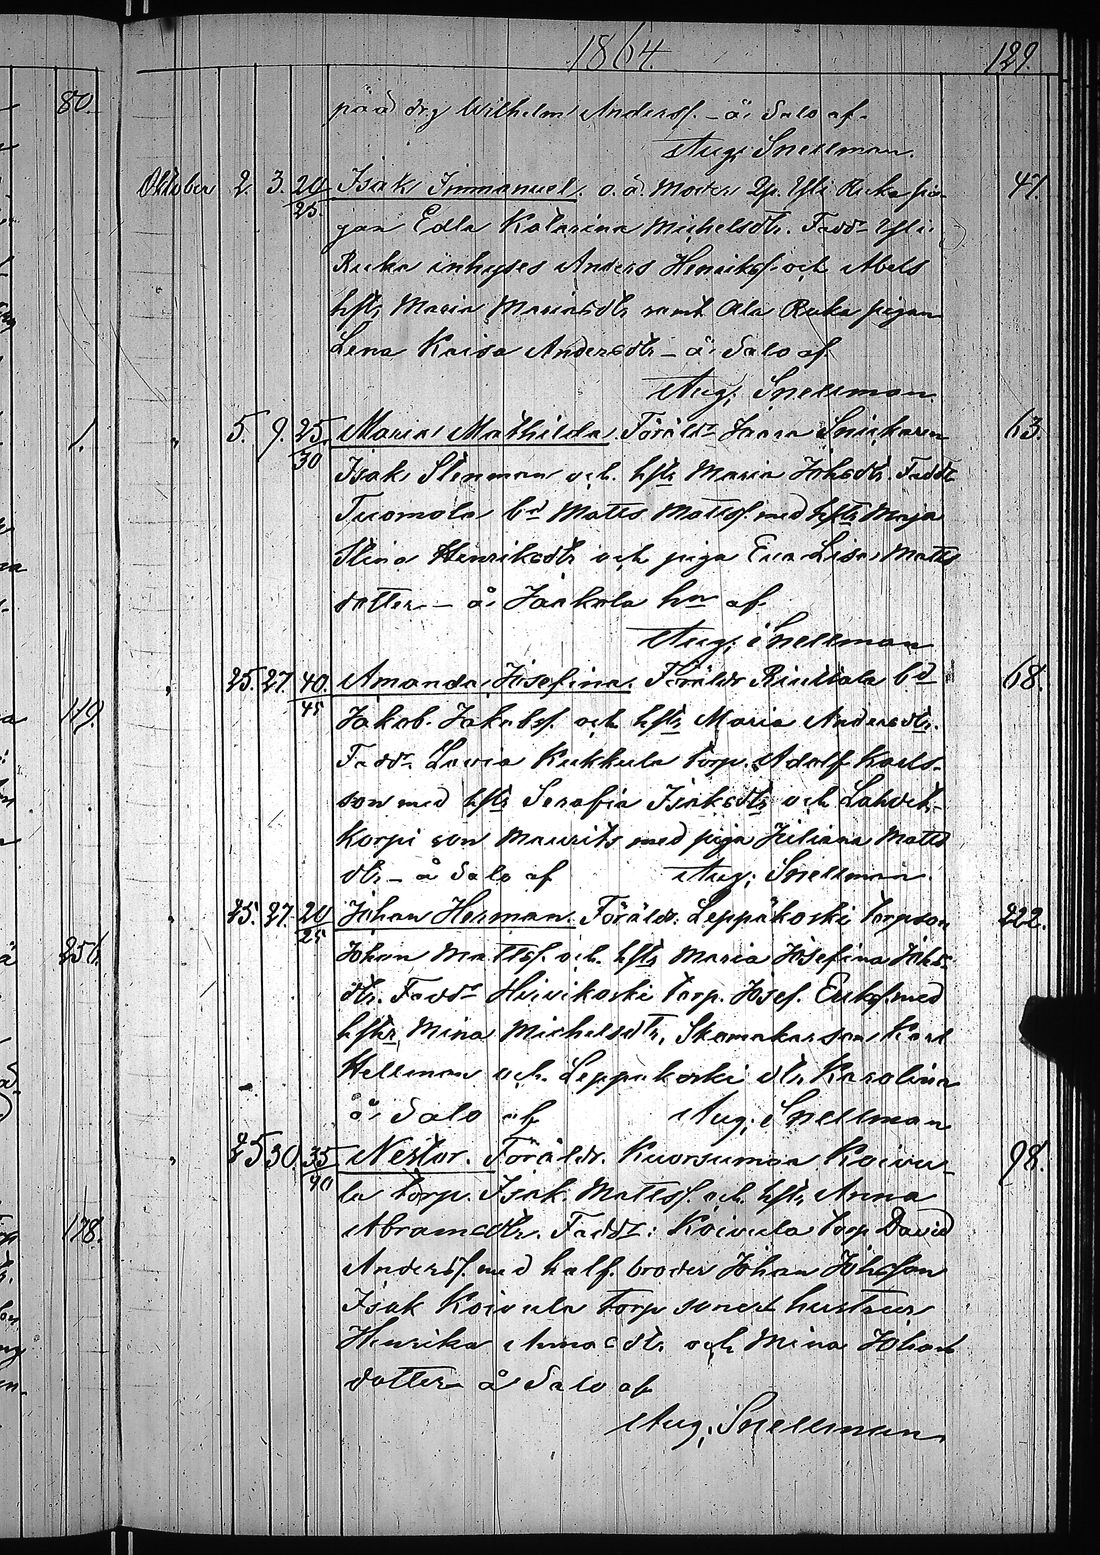 1864. 129.
80. på a drg Wilhelm Anderss. – å Salo af
Aug. Snellman.
Oktober 2. 3. 20/25. Isak Immanuel. o.ä. Moder Yli Ruka pi- 47.
gan Edla Katarina Michelsdtr. Fadd. Yli
Ruka inhyses Anders Henrikss. och Abels
hstr Maria Mariasdtr samt Ala Ruka pigan
Lena Kaisa Andersdtr – å Salo af
Aug. Snellman.
1. " 5. 9. 25/30. Maria Mathilda. Föräldr Jaara Snickaren 63.
Isak Stenman och hstr Maria Johsdtr. Faddr
Tuomola bd Matts Mattss. med hstr Maja
Stina Henriksdtr och piga Eva Lisa Matts
dotter – å Jaakola hn af
Aug. Snellman
" 25. 27. 40/45 Amanda Josefina. Föräldr Rintala bd 68.
119. Jakob Jakobss. och hstr Maria Andersdtr.
Fadd. Lavia Kukkula torp. Adolf Karls-
son med hstr Serafia Isaksdtr och Lahdes-
korpi son Maurits med piga Juliana Matts
dtr – å Salo af Aug. Snellman.
" 25. 27. 20/25 Johan Herman. Föräldr. Leppäkoski torpson 222.
256. Johan Mattss. och hstr Maria Josefina Johs-
dtr. Faddr Hirvikoski torp. Josef Erikss. med
hstr Mina Michelsdtr, Skomakarson Karl
Hellman och Leppäkoski dtr. Karolina
å Salo af Aug. Snellman
" 25 30 35/40 Nestor. Föräldr. Kuorsumaa Koivu- 98.
la torp. Isak Mattss. och hstr Anna
178. Abramsdtr. Faddr: Koivula torp David
Anderss. med half. broder Johan Johsson
Isak Koivula torp sonens hustru
Henrika Annasdtr och Mina Johans
dotter å Salo af
Aug. Snellman.